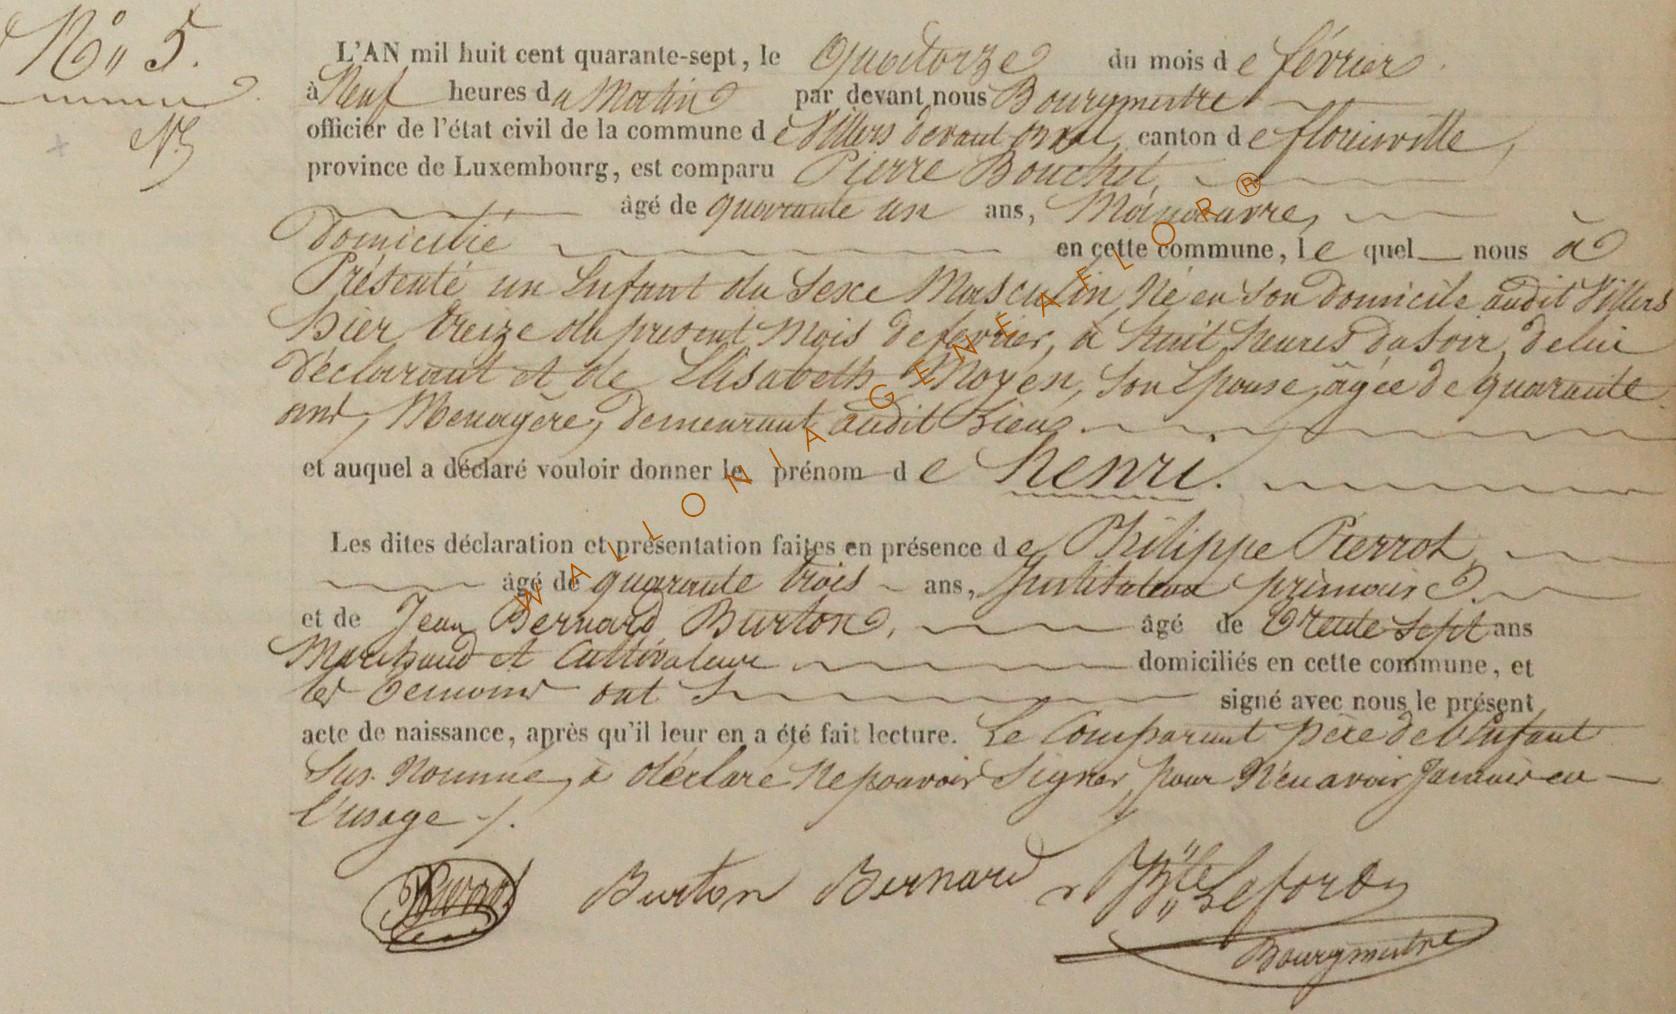 N° 5.
L'AN mil huit cent quarante-sept, le Quatorze du mois de février
à Neuf heures du Matin par devant nous Bourgmestre
officier de l'état civil de la commune de Villers devant Orval, canton de florenville,
province de Luxembourg, est comparu Pierre Bouchet,
âgé de quarante un ans, Manoeuvre,
Domicilié en cette commune, le quel nous à
Présenté un Enfant du Sexe Masculin, Né en Son Domicile audit Villers
hier treize du présent Mois de février, à huit heures du Soir, de lui
Déclarant et de Elisabeth Noyen, Son Epouse, âgée de quarante
ans, Menagère, demeurant audit Lieu.
et auquel a déclaré vouloir donner le prénom de henri.
Les dites déclaration et présentation faites en présence de Philippe Pierrot,
âgé de quarante trois ans, Instituteur primaire.
et de Jean Bernard Burton, âgé de trente sept ans
Marchand et Cultivateur domiciliés en cette commune, et
les temoins ont signé avec nous le présent
acte de naissance, après qu'il leur en a été fait lecture. Le Comparant père de l'Enfant
Sus-Nommé, à déclaré Ne pouvoir Signer, pour N'en avoir Jamais eu
l'usage ./.
Pierrot Burton Bernard Lefort
Bourgmestre
WALLONIA GENEAFLOR ®